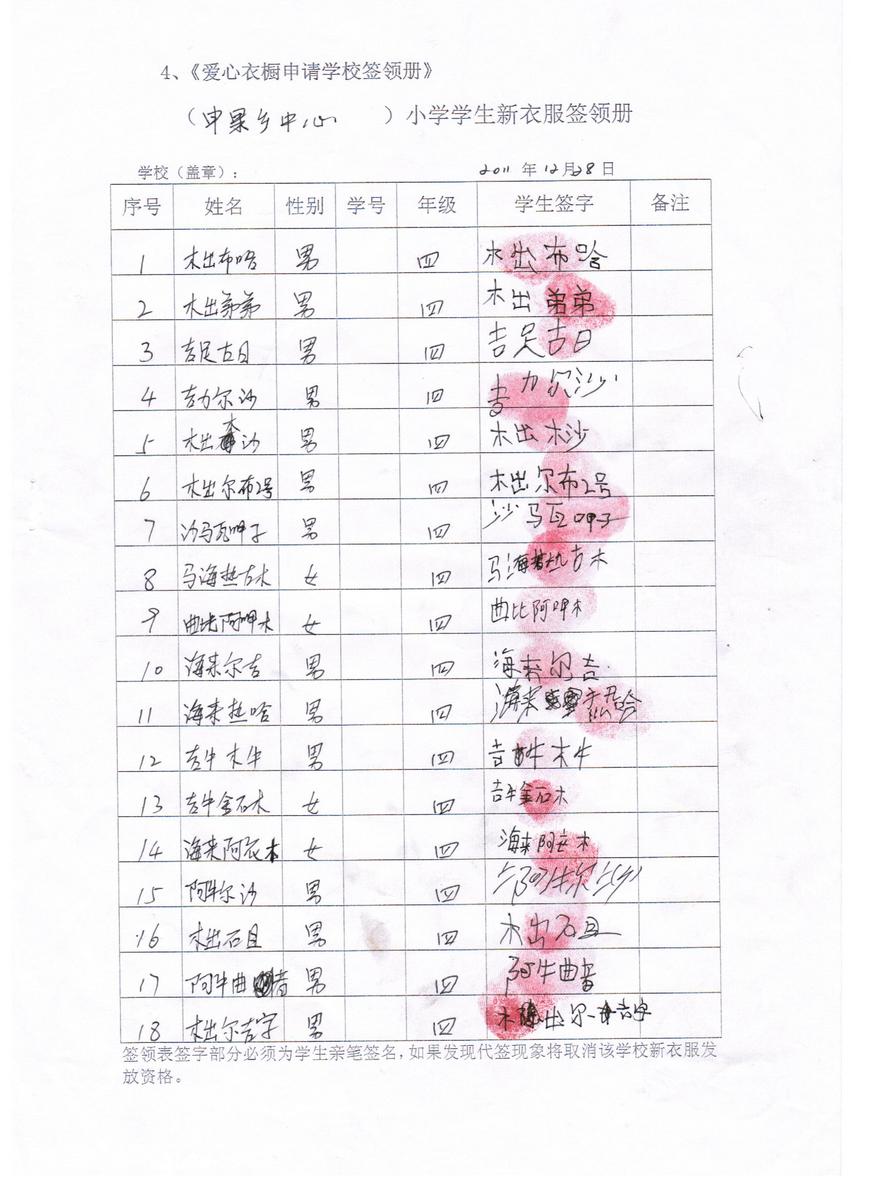 4、《爱心衣橱申请学校签领册》
（申果乡中心 ）小学学生新衣服签领册
学校（盖章）： 2011 年 12 月 28 日
序号 姓名 性别 学号 年级 学生签字 备注
1 木出布哈 男 四 木出布哈
2 木出弟弟 男 四 木出弟弟
3 吉足古日 男 四 吉足古日
4 吉力尔沙 男 四 吉力尔沙
5 木出木沙 男 四 木出木沙
6 木出尔布2号 男 四 木出尔布2号
7 沙马瓦呷子 男 四 沙马瓦呷子
8 马海热古木 女 四 马海热古木
9 曲比阿呷木 女 四 曲比阿呷木
10 海来尔吉 男 四 海来尔吉
11 海来热哈 男 四 海来热哈
12 吉牛木牛 男 四 吉牛木牛
13 吉牛金石木 女 四 吉牛金石木
14 海来阿衣木 女 四 海来阿衣木
15 阿牛尔沙 男 四 阿牛尔沙
16 木出石且 男 四 木出石且
17 阿牛曲 男 四 阿牛曲
18 木出尔吉字 男 四 木出尔吉字
签领表签字部分必须为学生亲笔签名，如果发现代签现象将取消该学校新衣服发
放资格。